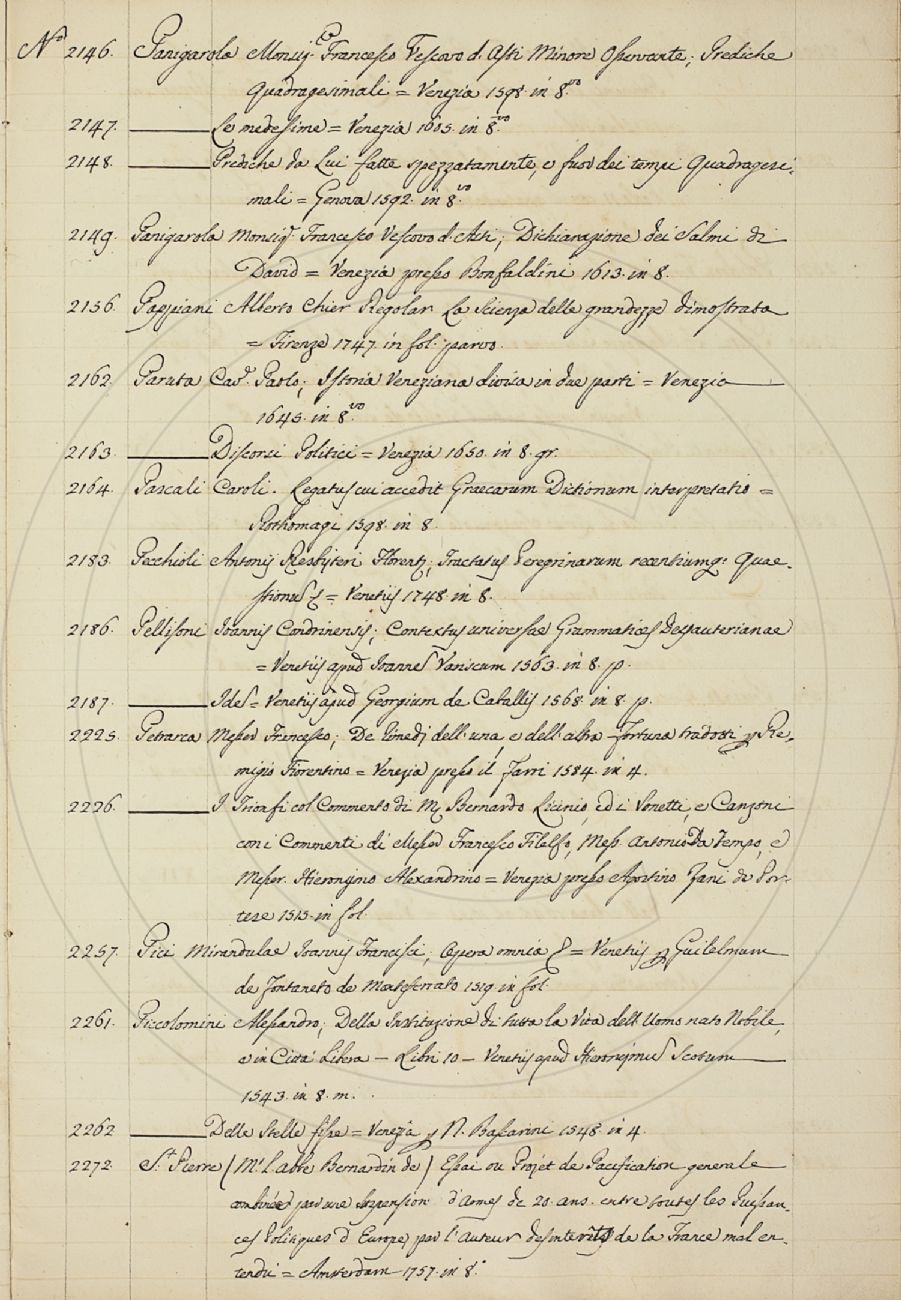 Nº 2146. Panigarola Monsigr. Francesco Vescovo d'Asti Minore Osservante; Prediche
Quadragesimali = Venezia 1598. in 8.vo
2147. ——— Le medesime = Venezia 1605. in 8.vo
2148. ——— Prediche da Lui fatte spezzatamente, e fuor dei tempi Quadragesi-
mali = Genova 1592. in 8.vo
2149. Panigarola Monsigr. Francesco Vescovo d'Asti; Dichiarazione dei Salmi di
David = Venezia presso Bonfaldini 1613. in 8.
2156. Pappiani Alberto Chier Regolar La Scienza delle grandezze dimostrata
= Firenze 1747. in fol. parvo.
2162. Paruta Cav.r Paolo; Istoria Veneziana divisa in due parti = Venezia ———
1645. in 8.vo
2163. ——— Discorsi Politici = Venezia 1650. in 8. gr.
2164. Pascali Caroli. Legatus cui accedit Graecarum Dictionum interpretatio =
Rothomagi 1598. in 8.
2183. Pecchioli Antonij Presbyteri Florent; Tractatus Peregrinarum recentiumq: Quae-
stionus = Venetijs 1748. in 8.
2186. Pellisoni Joannis Condriensis; Contextus universae Grammatices Despauterianae
= Venetijs apud Joannes Variscum 1563. in 8. p.
2187. ——— Ides = Venetijs apud Georgium de Caballis 1568. in 8. p.
2225. Petrarca Messer Francesco; De Rimedj dell'una, e dell'altra Fortuna tradotti p Re-
migio Fiorentino = Venezia presso il Farri 1584. in 4.
2226. ——— I Trionfi col Commento di M. Bernardo Licinio, ed i Sonetti, e Canzoni
con i Commenti di Messer Francesco Filelfo, Mess. Antonio Da Tempo, e
Messer. Hieronimo Alexandrino = Venezia presso Agostino Zani de Por-
tese 1515. in fol.
2257. Pici Mirandulae Joannis Francisci; Opera omnia = Venetijs p Guilelmum
de Fontaneto de Monteferrato 1519. in fol.
2261. Piccolomini Alessandro; Della Institazione di tutta la Vita dell'Uomo nato Nobile,
e in Città Libera — Libri 10 — Venetijs apud Hieronymus Scotum ———
1543. in 8. m.
2262 ——— Delle Stelle fisse = Venezia p N. Bascarini 1548. in 4.
2272. S.t Pierre (Mr. l'abbé Bernardin de) Essai ou Projet de Pacification generale
combinée par une suspension d'Armes de 20. ans. entre toutes les Puissan-
ces Politiques d'Europe, par l'Auteur des interêts de la France mal en-
tendû = Amsterdam 1757. in 8.